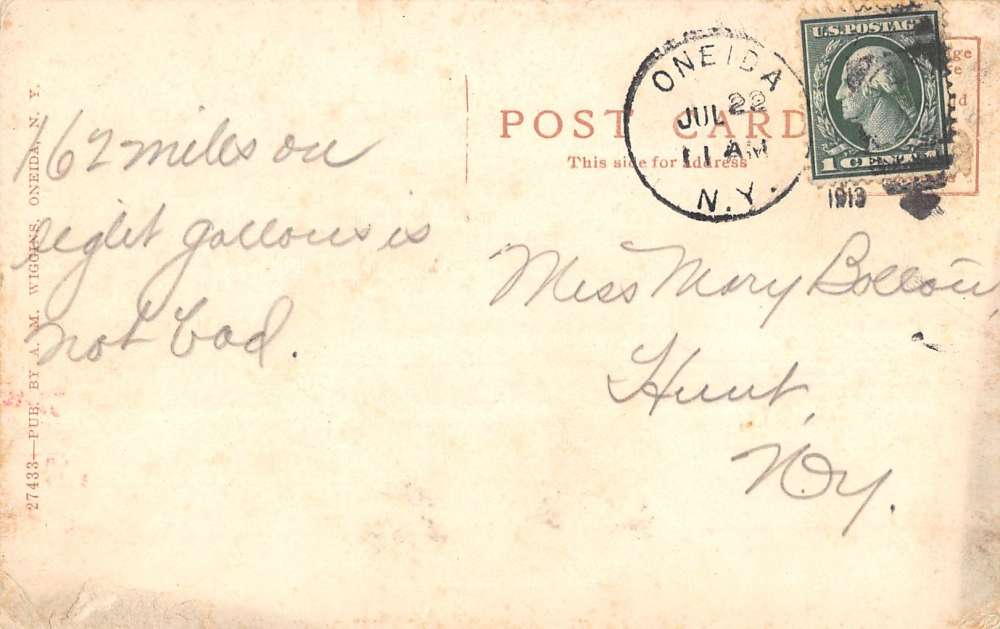 162 miles on
eight gallons is
not bad.
27433—PUB. BY A. M. WIGGINS, ONEIDA, N. Y.
POST CARD
This side for Address
ONEIDA
JUL 22
11 AM
N.Y.
1913
U.S. POSTAGE
1 CENT
Miss Mary
Hunt,
N.Y.